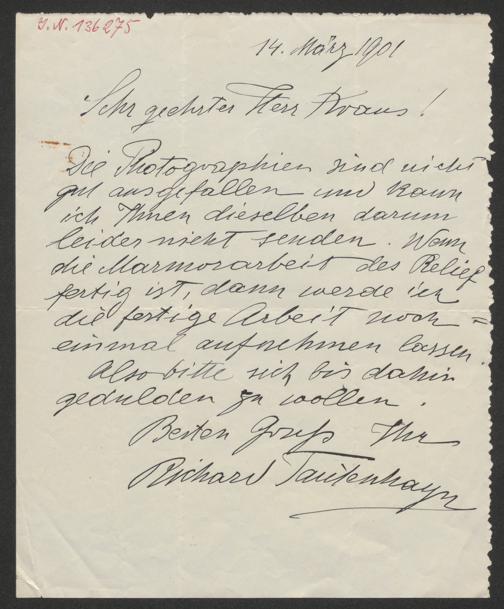 J.N. 136275
14. März 1901
Sehr geehrter Herr Kraus!
Die Photographien sind nicht
gut ausgefallen und kann
ich Ihnen dieselben darum
leider nicht senden. Wenn
die Marmorarbeit des Relief
fertig ist, dann werde ich
die fertige Arbeit noch=
einmal aufnehmen lassen.
Also bitte sich bis dahin
gedulden zu wollen.
Besten Gruß Ihr
Richard Tautenhayn